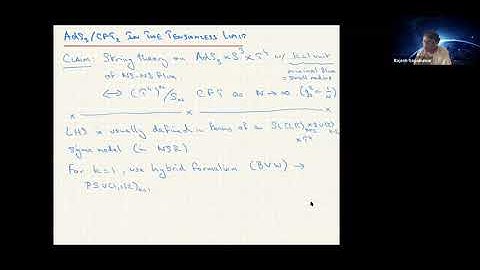 AdS3/CFT2 IN THE TENSIONLESS LIMIT
CLAIM: String theory on AdS3 × S^3 × T^4 w/ k=1 unit
of NS-NS flux
minimal flux
= small radius
⟺ (T^4)^N/S_N CFT as N→∞
LHS is usually defined in terms of an SL(2,R) × SU(2)
× T^4
sigma model (in NSR)
For k=1, use hybrid formalism (BVW) →
PSU(1,1|2)_{k=1}
Rajesh Gopakumar